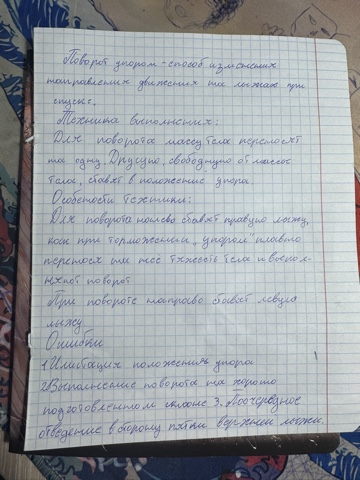 Поворот упором - способ изменения
направления движения на лыжах при
спуске.
Техника выполнения:
Для поворота массу тела переносят
на одну. Другую, свободную от массы
тела, ставят в положение упора.
Особености техники:
Для поворота налево ставят правую лыжу,
как при торможении "упором" плавно
перенося на нее тяжесть тела и выпол-
няют поворот
При повороте направо ставят левую
лыжу
Ошибки
1 Имитация положения упора
2 Выполнение поворота на хорошо
подготовленном склоне 3. Поочередное
отведение в сторону пятки верхней лыжи.